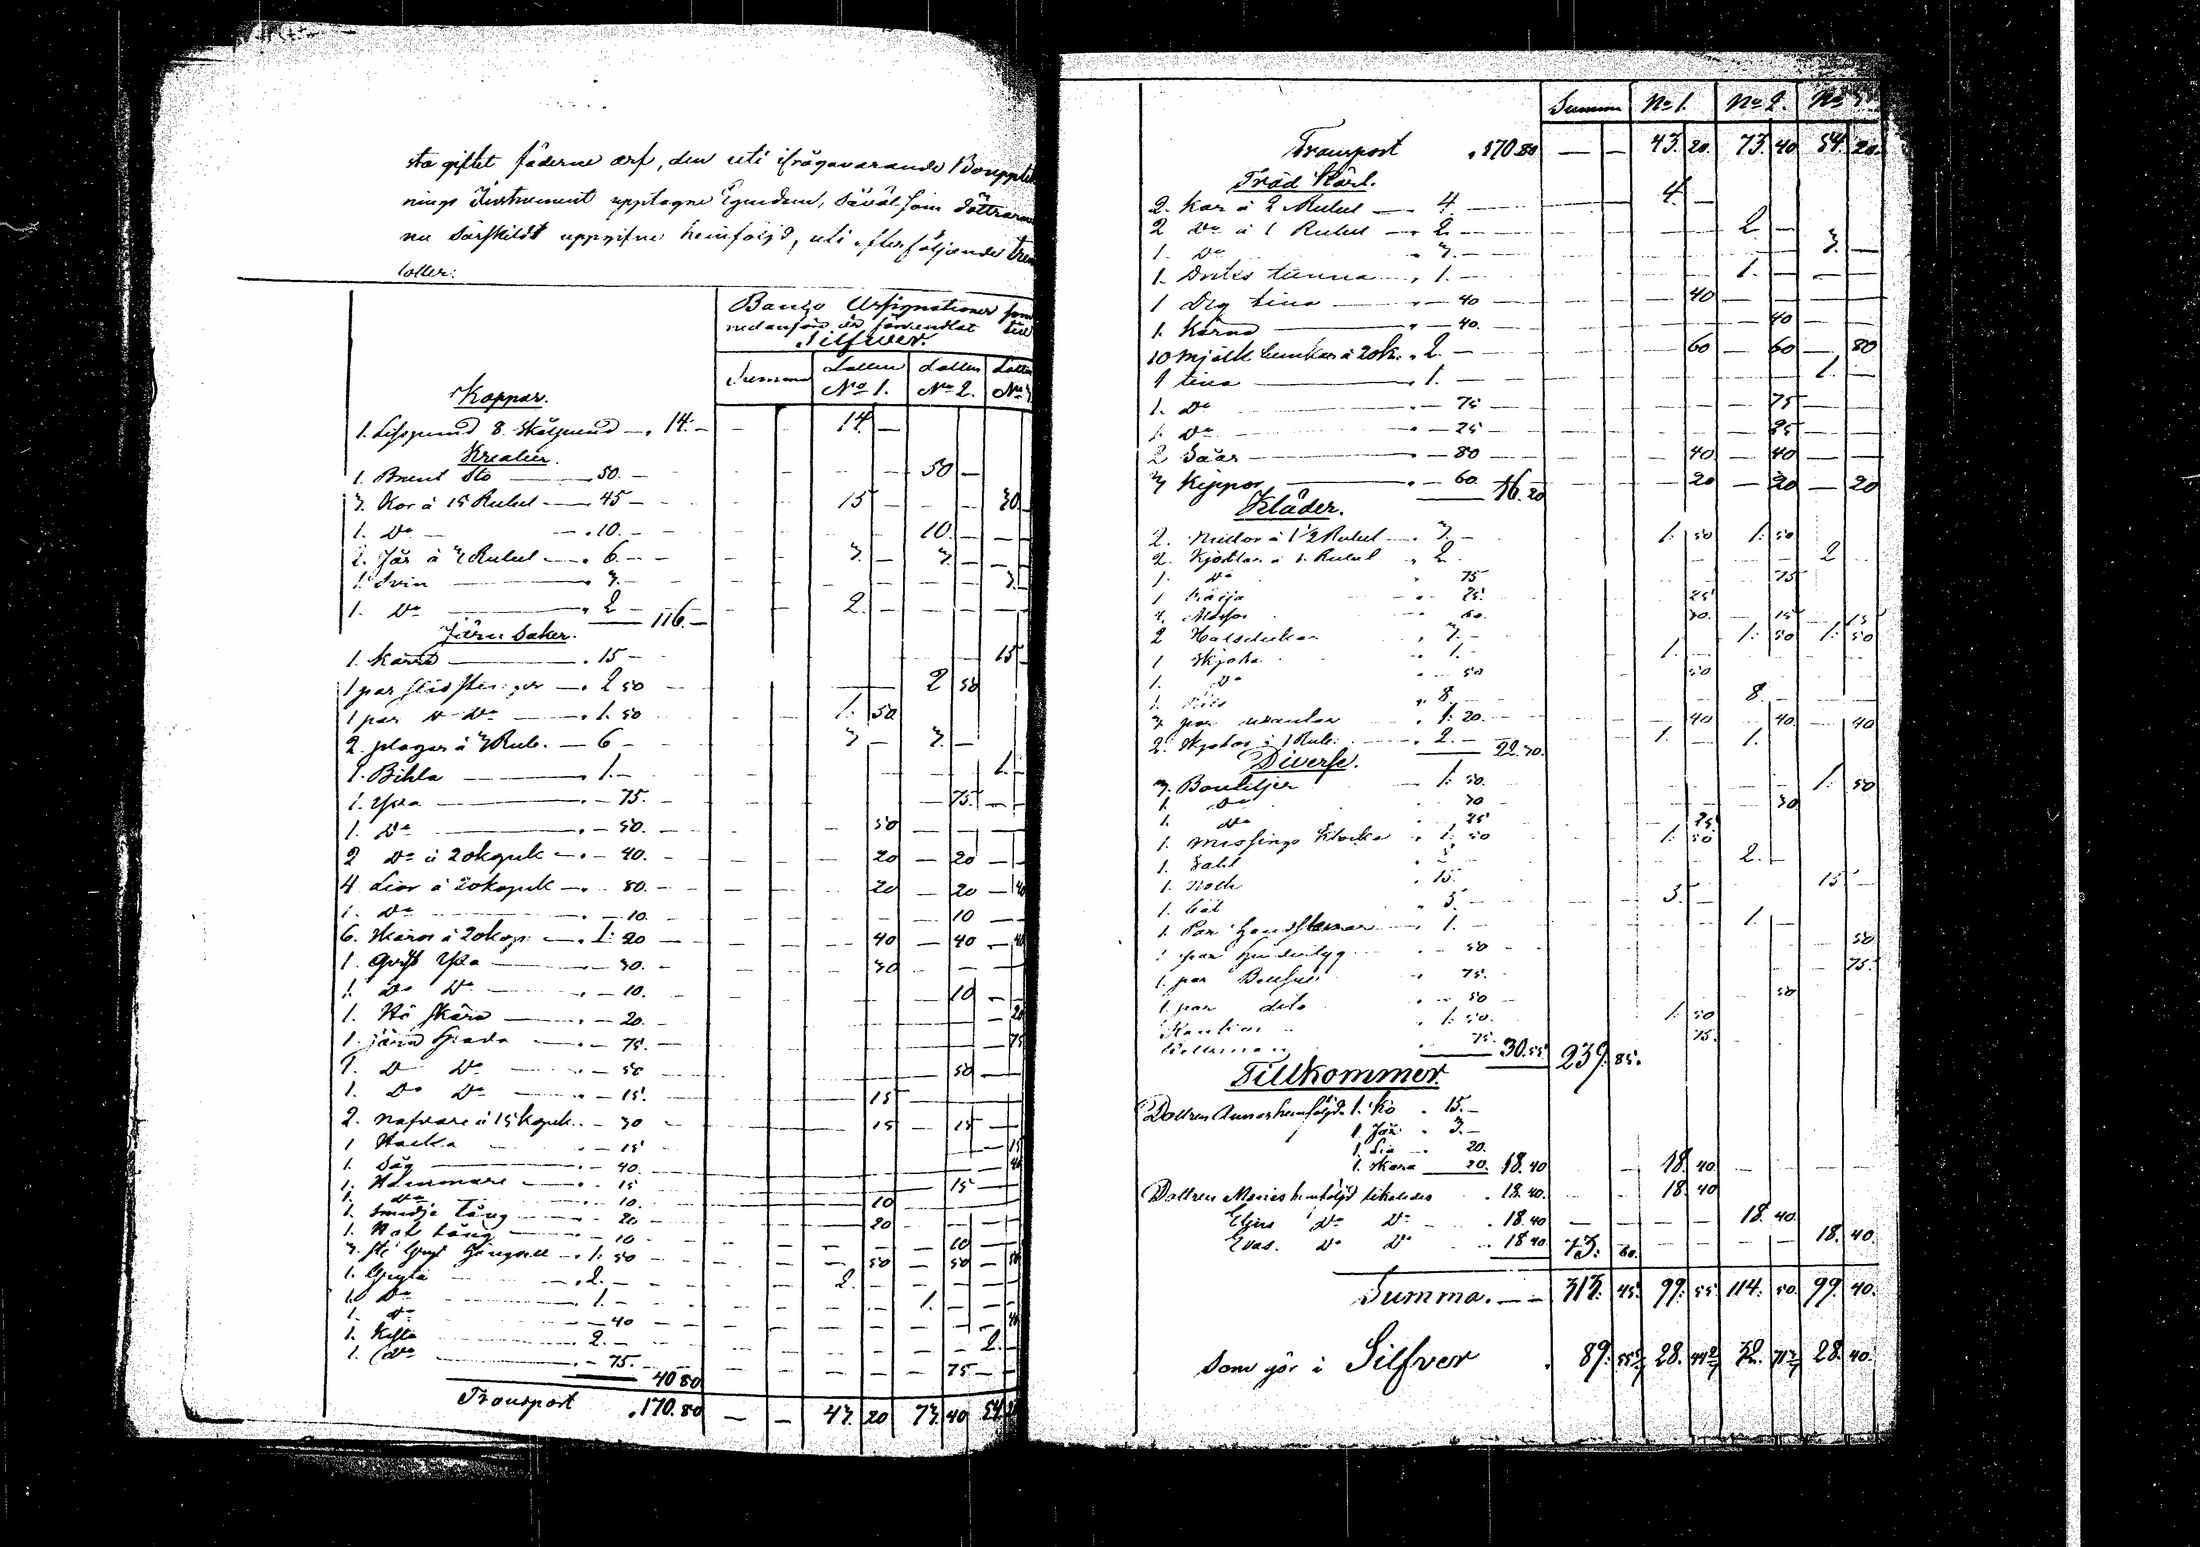 sta giftet fäderne arf, den uti ifrågavarande Bouppteck
nings Instrument upptagne Egendom, såväl som döttrarne
nu särskildt uppgifne hemföljd, uti efterföljande trenne
lotter:
Banco Assignationer som
nedanföre är förvandlat till
Silfver.
Summa Lotten No 1. Lotten No 2. Lotten No 3.
Koppar.
1. Lispund 8 Skålpund — 14. — 14 —
Kreatur.
1. Brunt Sto — 50. — 50 —
3. Kor à 15 Rubel — 45 — 15 — 30.
1. Do — 10. — 10. —
2. Får à 3 Rubel — 6. — 3. — 3. —
1. Svin — 3. — 3.
1. Do — 2 — 116. — 2. —
Järn Saker.
1. Kärra — 15 — 15 —
1 par — 2 50 — 2 50
1 par D Do — 1. 50 — 1. 50.
2. plogar à 3 Rub. — 6 — 3 — 3. —
1. Bihla — 1. — 1. —
1. Yxa — 75. — 75.
1. Do — 50. — 50
2 Do à 20 kopek — 40. — 20 — 20
4 Liar à 20 kopek — 80. — 20 — 20 — 40
1. Do — 10. — 10
6. Skäror à 20 kop. — 1. 20 — 40 — 40 — 40
1. Yxa — 30. — 30
1. Do Do — 10. — 10
1. Skära — 20. — 20
1. järn — 75. — 75
1. D Do — 50 — 50
1. Do Do — 15. — 15
2. Nafvare à 15 kopek — 30 — 15 — 15
1 Hacka — 15 — 15
1. Såg — 40. — 40
1. Hammare — 15 — 15
1. Do — 10. — 10
1. Smidje tång — 20 — 20
1. tång — 10 — 10
3. — 1. 50 — 50 — 50 — 50
1. Gryta — 2. — 2.
1. Do — 1. — 1. —
1. Do — 40 — 40
1. Kista — 2. — 2. —
1. Do — 75. — 40 80 — 75
Transport 170. 80 — — 43. 20 73. 40 54. 20
Summa No 1. No 2. No 3.
Transport 170. 80 — — 43. 20. 73. 40 54. 20.
Träd Kärl.
2. Kar à 2 Rubel — 4. — 4.
2 Do à 1 Rubel — 2. — 2 —
1. Do 3. — 3. —
1. Dricks tunna — 1. — 1. —
1 Deg tina — 40 — 40
1. Kärna — 40. — 40
10 Mjölk bunkar à 20 k. 2. — 60 — 60 — 80
1 tina — 1. — 1. —
1. Do — 75 — 75
1. Do — 25 — 25
2 Såar — 80 — 40 — 40
3 Kippor — 60. 16. 20 — 20 — 20 — 20
Kläder.
2. à 1 1/2 Rubel — 3. — 1. 50 1. 50
2. Kjortlar à 1. Rubel 2 — 2
1. Do 75 — 75
1 Tröija 25. — 25
4. Mössor 60. — 30. — 15 — 15
2 Halsdukar 3. — 1. 50 1. 50
1 Skjorta 1. — 1. —
1. Do — 50 — 50
1. 8. — 8. —
3. par vantar 1. 20. — 40 — 40. — 40
2. Skjortor à 1 Rub. 2. — 22. 30. 1. — 1.
Diverse.
3. Bouteljer — 1. 50. — 1. 50
1. Do 30 — 30
1. Do 25 — 25
1. Messings Klocka 1. 50 — 1. 50
1. 2. —
1. 15. — 15 —
1. Båt 5. — 5. —
1. Par — 1. — 1. —
50 — 50
1. par 75. — 75.
1. par dito 50 — 50
1. 50. — 1. 50
75. 30. 55 239. 85. 75.
Tillkommer.
Dottren Annas hemföljd. 1. Ko 15. —
1 Får 3. —
1. Lia 20.
1. Skära 20. 18. 40 — 18. 40.
Dottren Marias hemföljd likaledes 18. 40. — 18. 40
Do Do 18. 40 — 18. 40.
Evas. Do Do 18 40 73. 60. — 18. 40.
Summa. — 313. 45. 99. 55 114. 50. 99. 40.
Som gör i Silfver 89. 28. 32. 28. 40.